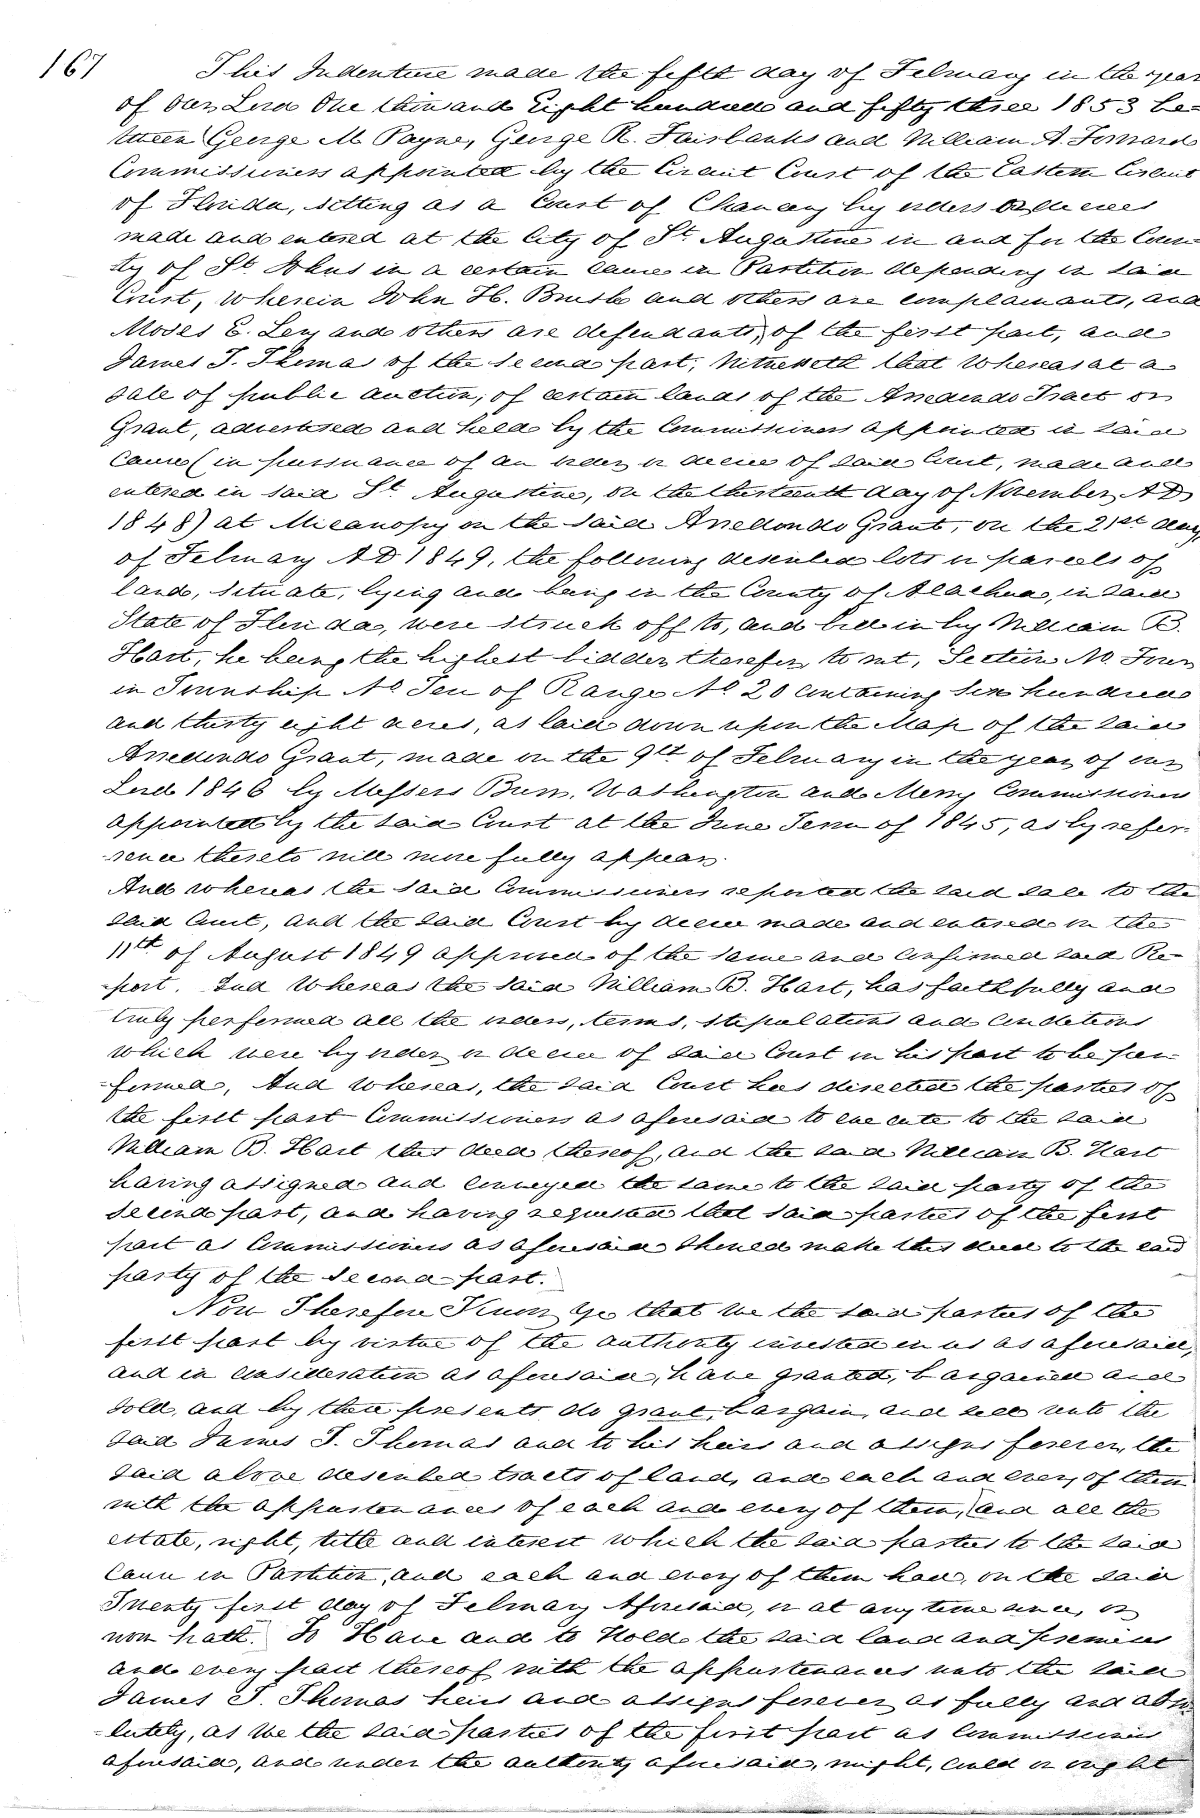 167
This Indenture made the fifth day of February in the year
of our Lord One thousand Eight hundred and fifty three 1853 be-
tween George M Payne, George R. Fairbanks and William A. Forward
Commissioners appointed by the Circuit Court of the Eastern Circuit
of Florida, sitting as a Court of Chancery by orders or decrees
made and entered at the City of St. Augustine in and for the Coun-
ty of St. Johns in a certain cause in Partition depending in said
Court, wherein John H. Brush and others are complainants, and
Moses E. Levy and others are defendants, of the first part, and
James T. Thomas of the second part, Witnesseth that Whereas at a
sale of public auction, of certain lands of the Arredondo Tract or
Grant, advertised and held by the Commissioners appointed in said
cause (in pursuance of an order or decree of said Court, made and
entered in said St. Augustine, on the thirteenth day of November, AD
1848) at Micanopy on the said Arredondo Grant, on the 21st day
of February AD 1849, the following described lots or parcels of
land, situate, lying and being in the County of Alachua, in said
State of Florida, were struck off to, and bid in by William B.
Hart, he being the highest bidder therefor, to wit, Section No Four
in Township No Ten of Range No 20 containing six hundred
and thirty eight acres, as laid down upon the Map of the said
Arredondo Grant, made on the 9th of February in the year of our
Lord 1846 by Messers Burr, Washington and Merry Commissioners
appointed by the said Court at the June Term of 1845, as by refer-
-rence thereto will more fully appear.
And whereas the said Commissioners reported the said sale to the
said Court, and the said Court by decree made and entered on the
11th of August 1849 approved of the same and confirmed said Re-
-port. And Whereas the said William B. Hart, has faithfully and
truly performed all the orders, terms, stipulations and conditions
which were by order or decree of said Court on his part to be per-
-formed, And whereas, the said Court has directed the parties of
the first part Commissioners as aforesaid to execute to the said
William B. Hart this deed thereof, and the said William B. Hart
having assigned and conveyed the same to the said party of the
second part, and having requested that said parties of the first
part as Commissioners as aforesaid should make this deed to the said
party of the second part.
Now Therefore Know Ye that we the said parties of the
first part by virtue of the authority invested in us as aforesaid,
and in consideration as aforesaid, have granted, bargained and
sold, and by these presents do grant, bargain, and sell unto the
said James T. Thomas and to his heirs and assigns forever, the
said above described tracts of land, and each and every of them
with the appurtenances of each and every of them, and all the
estate, right, title and interest which the said parties to the said
cause in Partition, and each and every of them had, on the said
Twenty first day of February Aforesaid, or at any time since, or
now hath. To Have and to Hold the said land and premises
and every part thereof with the appurtenances unto the said
James T. Thomas heirs and assigns forever, as fully and abso-
-lutely, as we the said parties of the first part as Commissioners
aforesaid, and under the authority aforesaid, might, could or ought